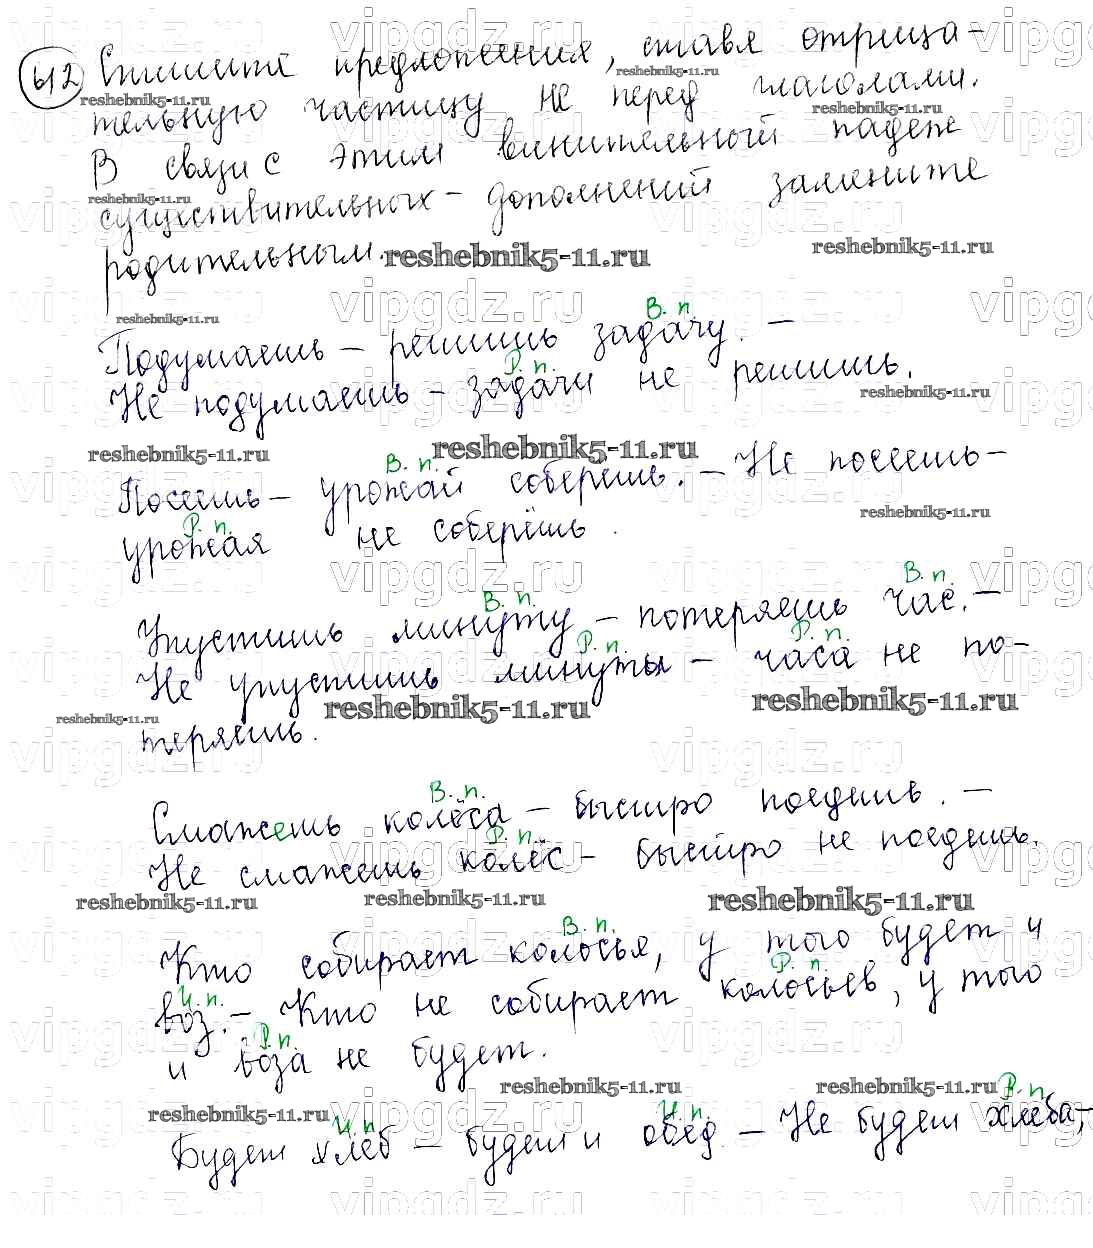 612 Спишите предложения, ставя отрица-
тельную частицу не перед глаголами.
В связи с этим винительный падеж
существительных - дополнений замените
родительным.
В. п.
Подумаешь - решишь задачу. -
Р. п.
Не подумаешь - задачи не решишь.
В. п.
Посеешь - урожай соберешь. - Не посеешь -
Р. п.
урожая не соберёшь.
В. п. В. п.
Упустишь минуту - потеряешь час. -
Р. п. Р. п.
Не упустишь минуты - часа не по-
теряешь.
В. п.
Смажешь колёса - быстро поедешь. -
Р. п.
Не смажешь колёс - быстро не поедешь.
В. п.
Кто собирает колосья, у того будет и
И. п. Р. п.
воз. - Кто не собирает колосьев, у того
Р. п.
и воза не будет.
И. п. И. п. Р. п.
Будет хлеб - будет и обед. - Не будет хлеба,
reshebnik5-11.ru
vipgdz.ru